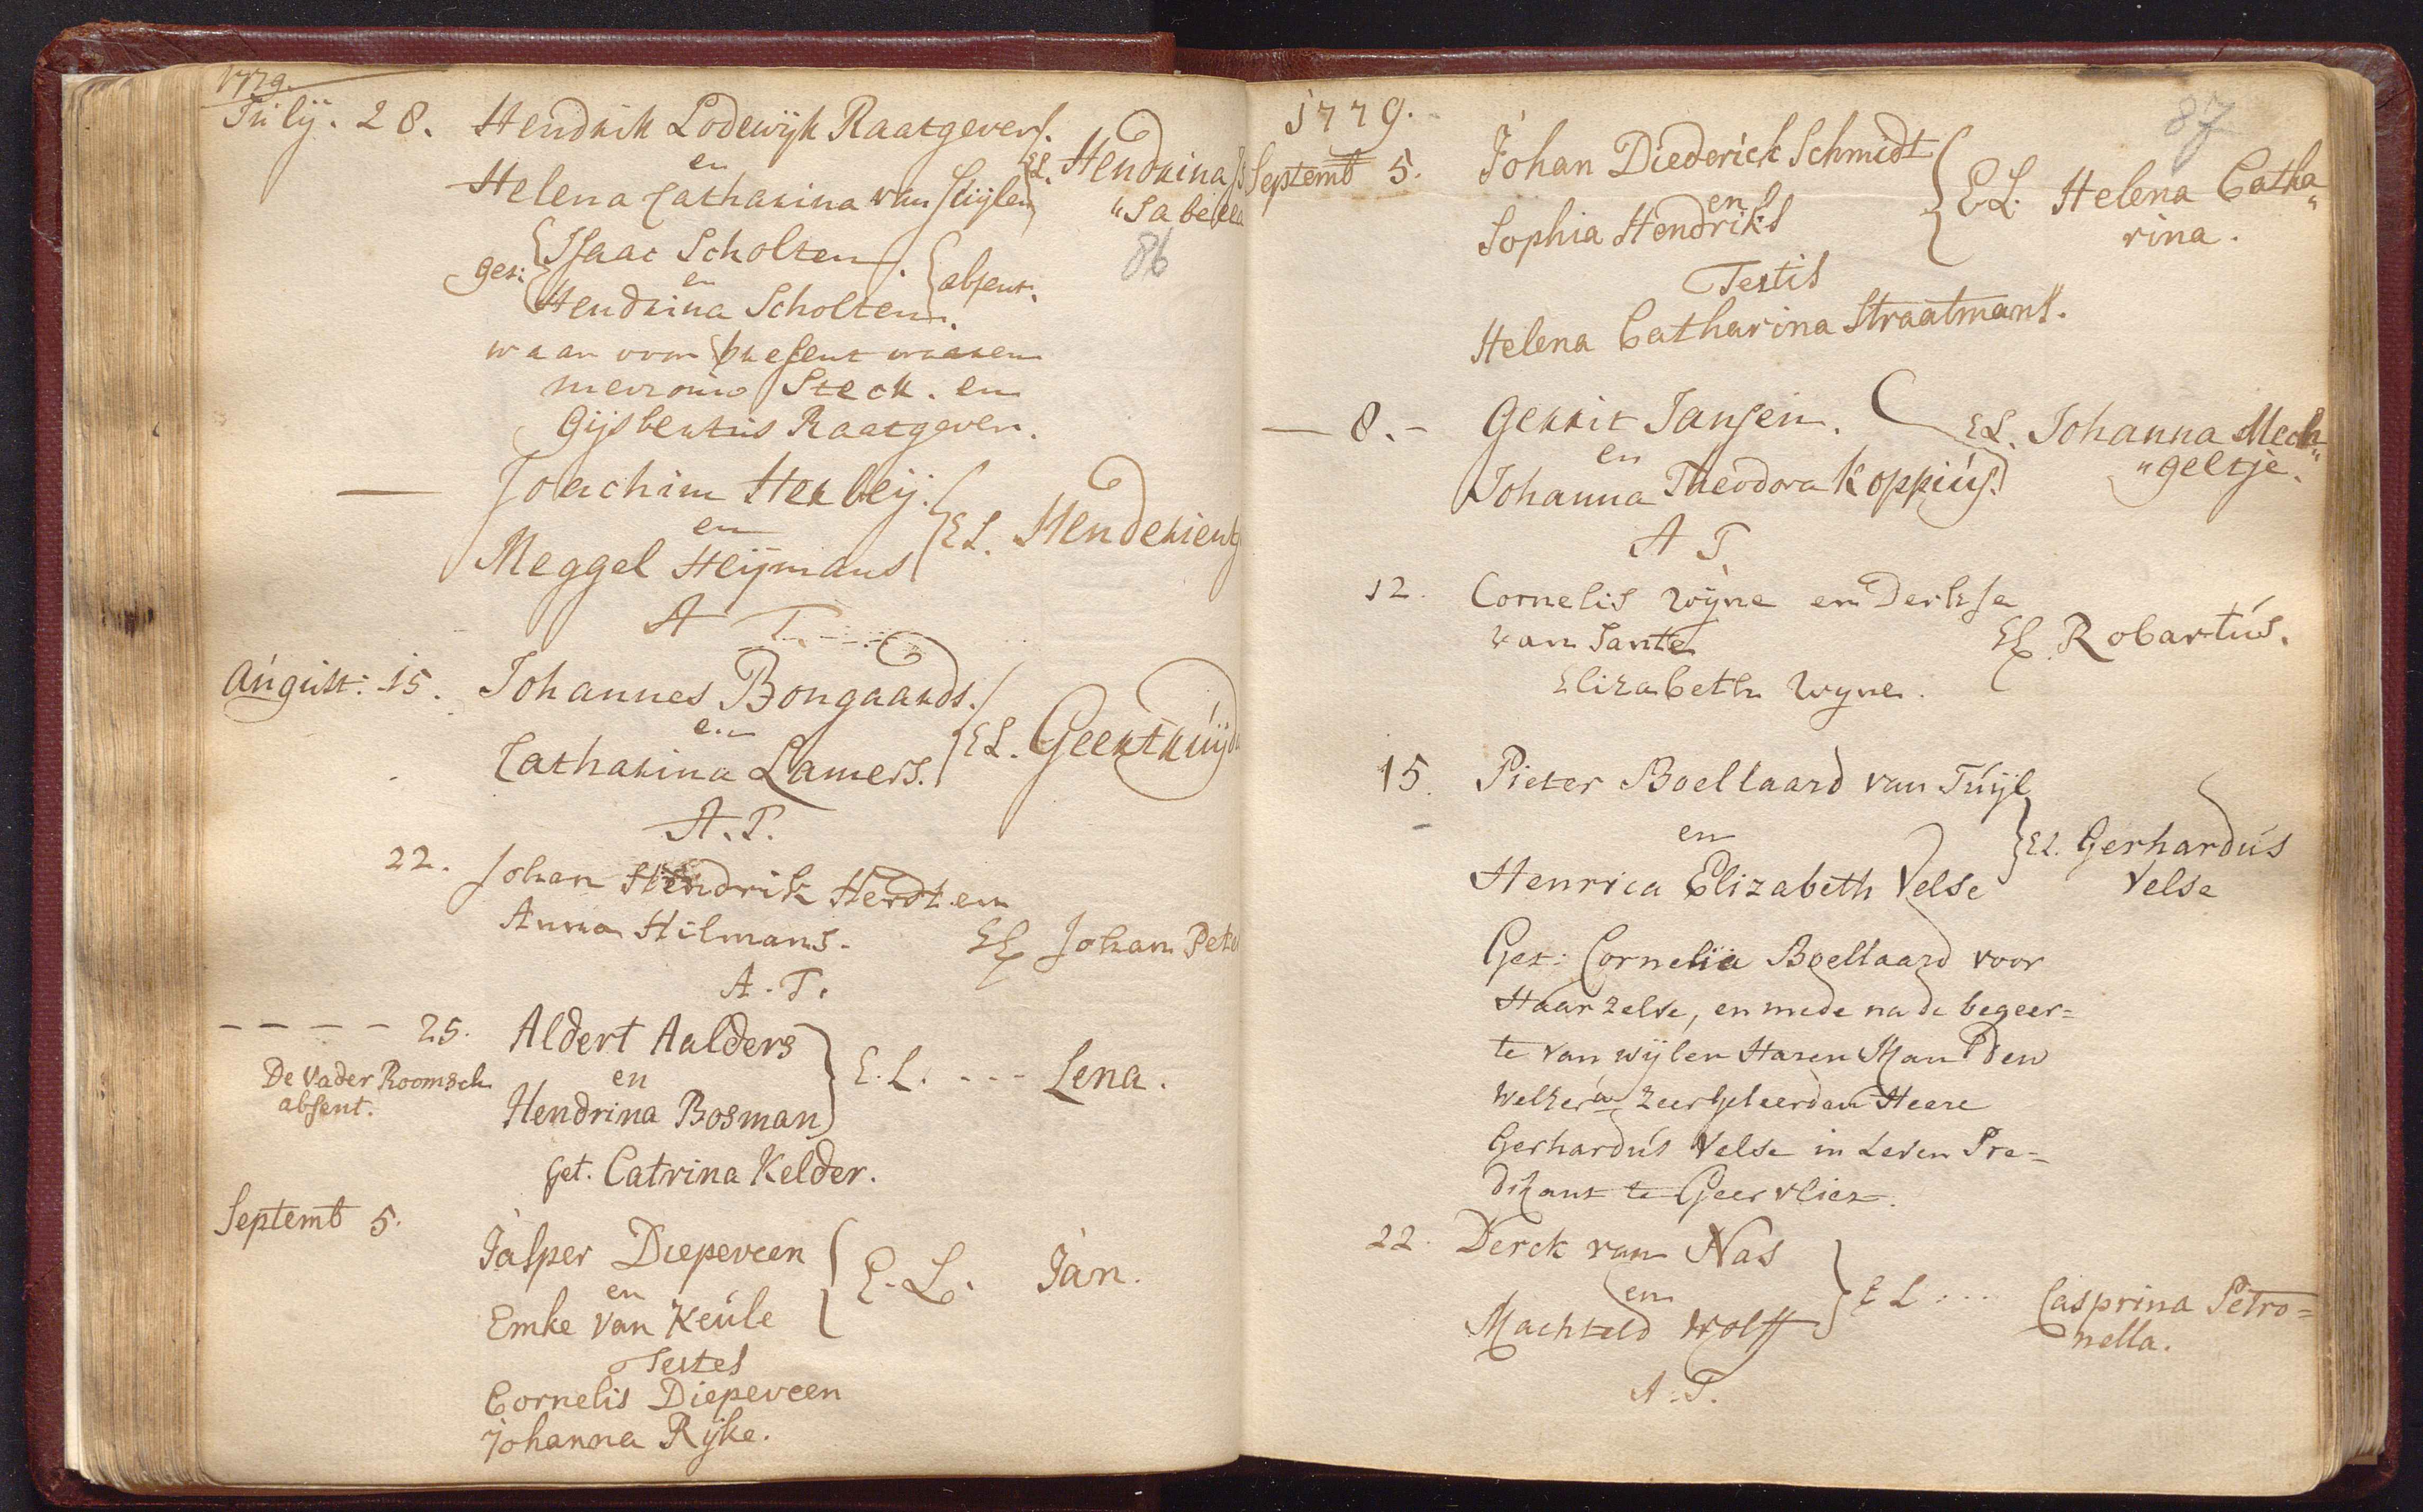 1779.
Julij. 28. Hendrik Lodewijk Raatgever.
en
Helena Catharina van Suijlen
EL. Hendrina
"Isabella
86
get: Isaac Scholten. absent.
en
Hendrina Scholten.
waar voor present waaren
mevrouw Steck. en
Gijsbertus Raatgever.
— Joachim Herbeij.
en
Meggel Heijmans
EL. Henderient
A T.
August: 15. Johannes Bongaards.
en
Catharina Lamers.
EL. Geertruijd
A. T.
22. Johan Hendrik Herdt en
Anna Hilmans.
EL Johan Pet
A. T.
- - - - 25. Aldert Aalders
De Vader Roomsch
absent.
en
Hendrina Bosman
E. L. - - - Lena.
get. Catrina Kelder.
Septemb 5.
Jasper Diepeveen
en
Emke van Keule
E. L. Jan.
Testes
Cornelis Diepeveen
Johanna Rijke.
1779.
87
Septemb 5. Johan Diederick Schmidt
en
Sophia Hendriks
EL. Helena Catha"
rina.
Testis
Helena Catharina Straatmans.
— 8. - Gerrit Jansen.
en
Johanna Theodora Koppius.
EL. Johanna Mech"
"geltje.
A T
12. Cornelis Wijne en Derkse
van Sante
EL. Robartus.
Elizabeth Wyne.
15. Pieter Boellaard van Tuijl
en
Henrica Elizabeth Velse
EL. Gerhardus
Velse
Get: Cornelia Boellaard voor
Haar zelve, en mede na de begeer=
te van wijlen Haren Man den
WelEerw Zeer Geleerden Heere
Gerhardus Velse in Leven Pre=
dikant te Geervliet.
22. Derck van Nas
en
Machteld Wolff
E L . . . Casprina Petro=
nella.
A. T.